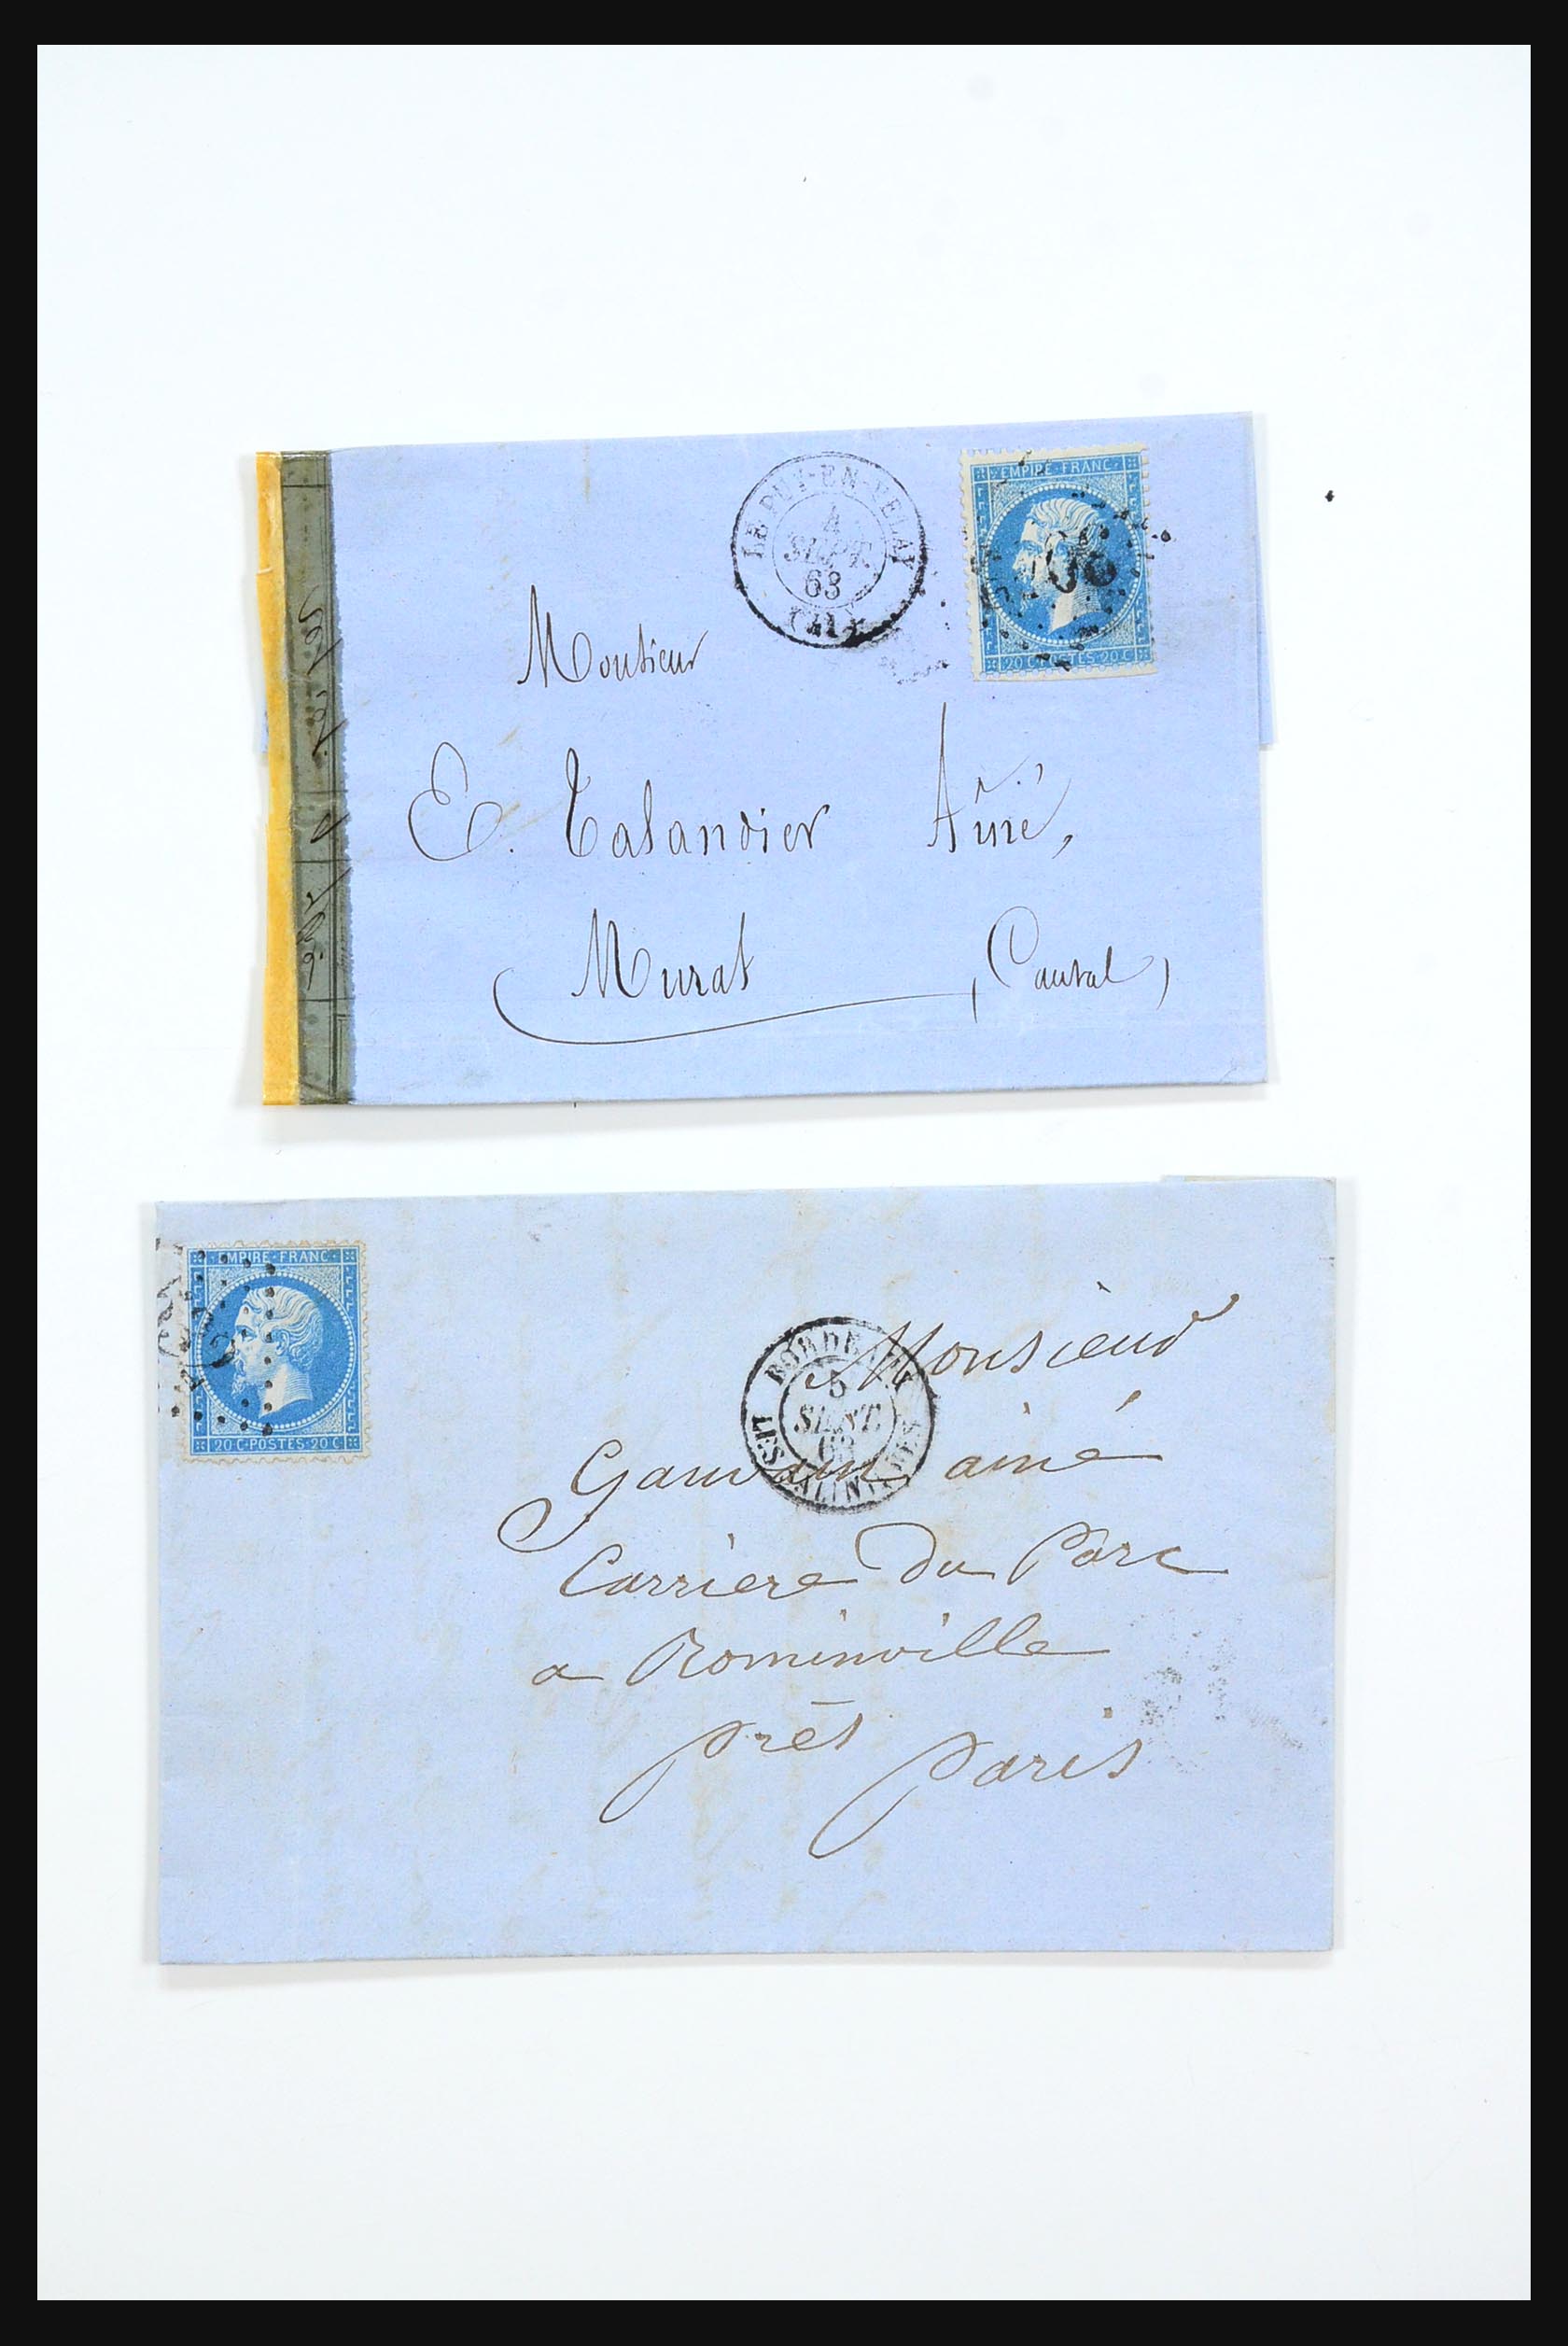 LE PUY-EN-VELAY
4
SEPT.
63
(41)
EMPIRE·FRANC·
20 C·POSTES·20 C
Monsieur
E. Talandier Aîné,
Murat (Cantal)
EMPIRE·FRANC·
20 C·POSTES·20 C
BORDEAUX
5
SEPT.
63
LES SALINIERES
Monsieur
Gauvain ainé
Carriere du Parc
a Rominville
près Paris